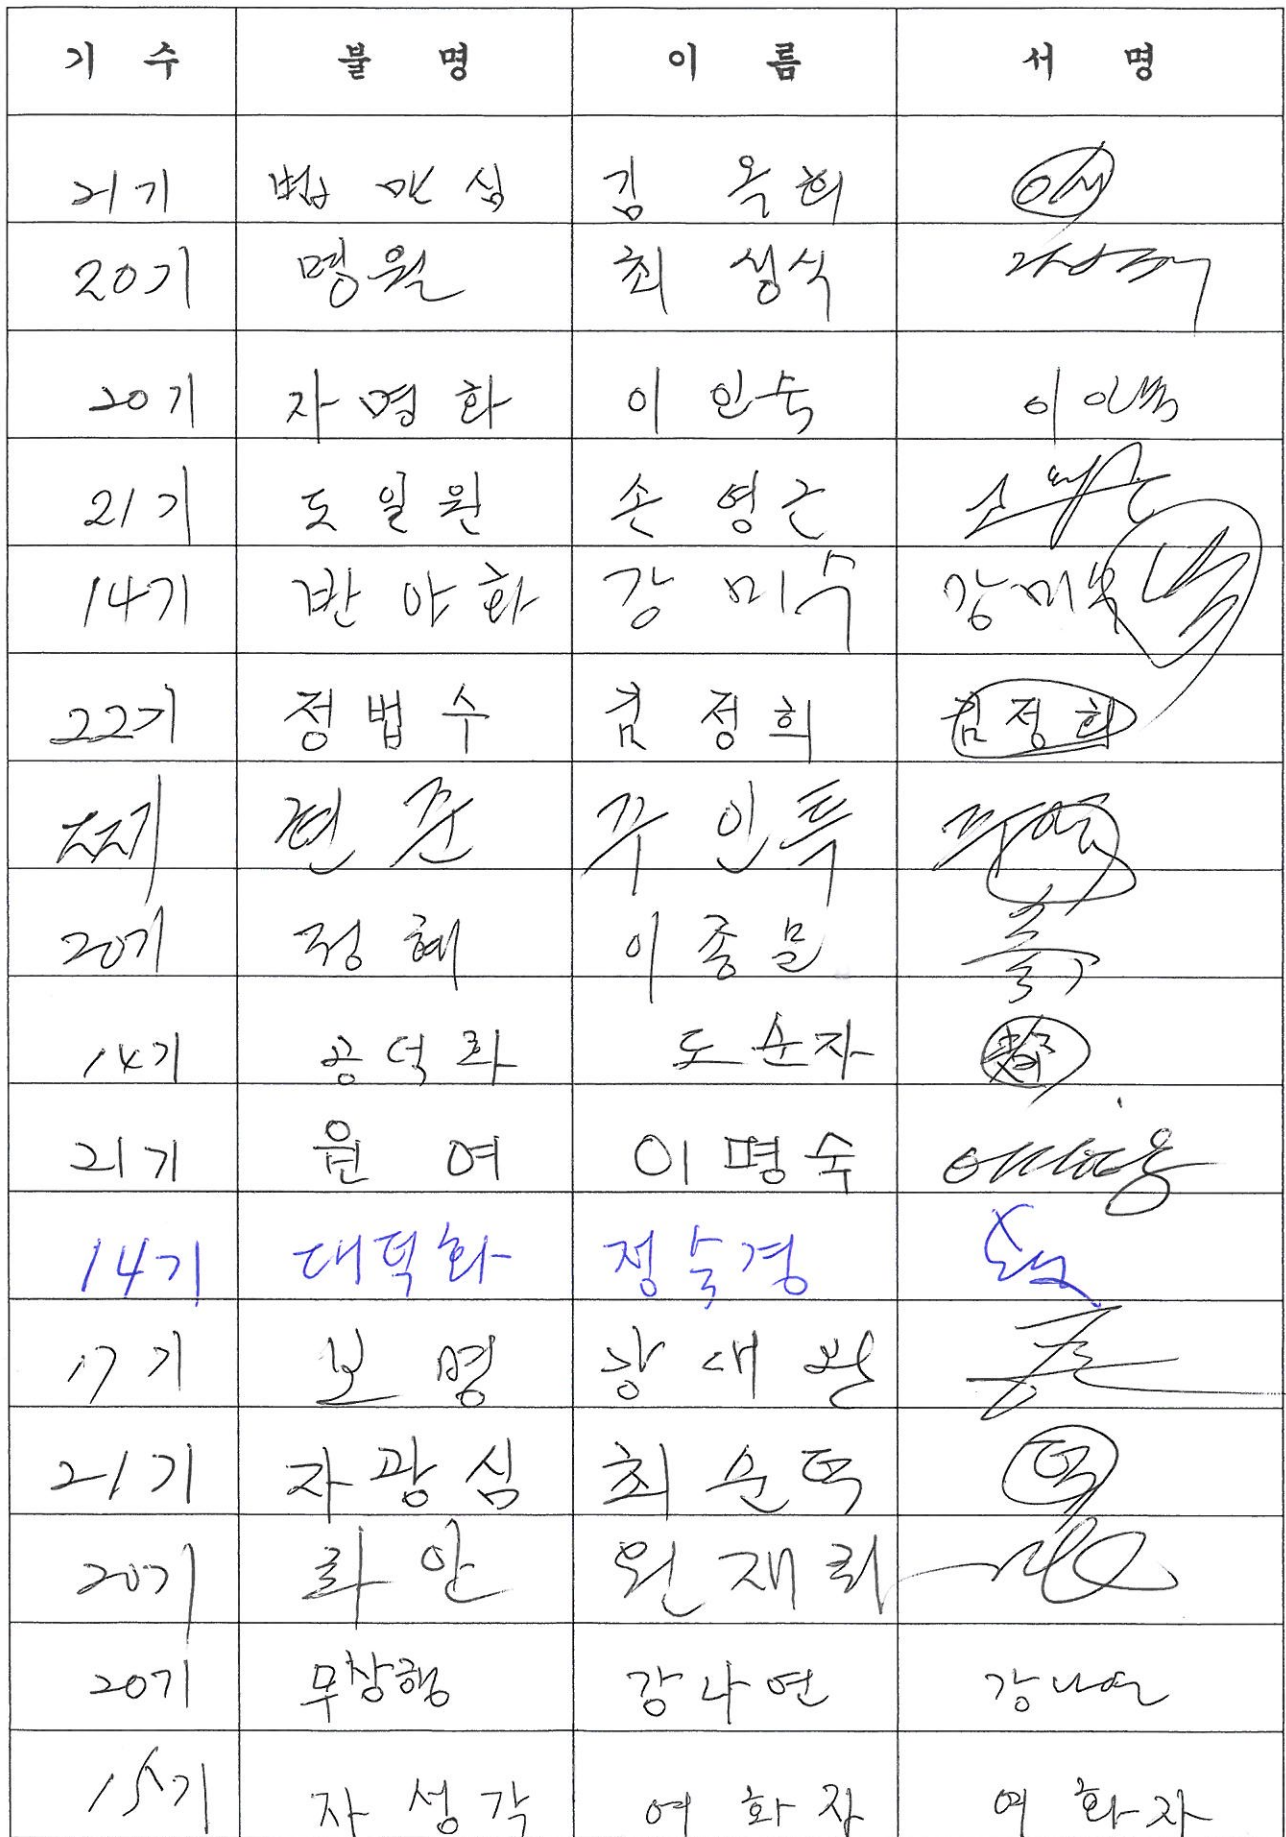 기 수 불 명 이 름 서 명
21기 법안심 김옥희
20기 명월 최성식
20기 자명화 이인숙 이인숙
21기 도일원 손영근 손영근
14기 반야화 강미수 강미수
22기 정법수 김정희 김정희
22기 현준 주인투
20기 정혜 이종문
14기 공덕화 도순자
21기 원여 이명숙
14기 대덕화 정숙경
17기 보명 강대완
21기 자광심 최순덕 덕
20기 화안 원재희
20기 무창행 강나연 강나연
15기 자성각 여화자 여화자